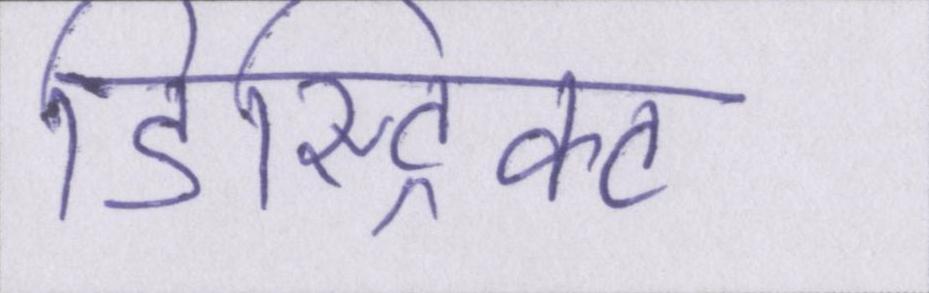 डिस्ट्रिक्ट